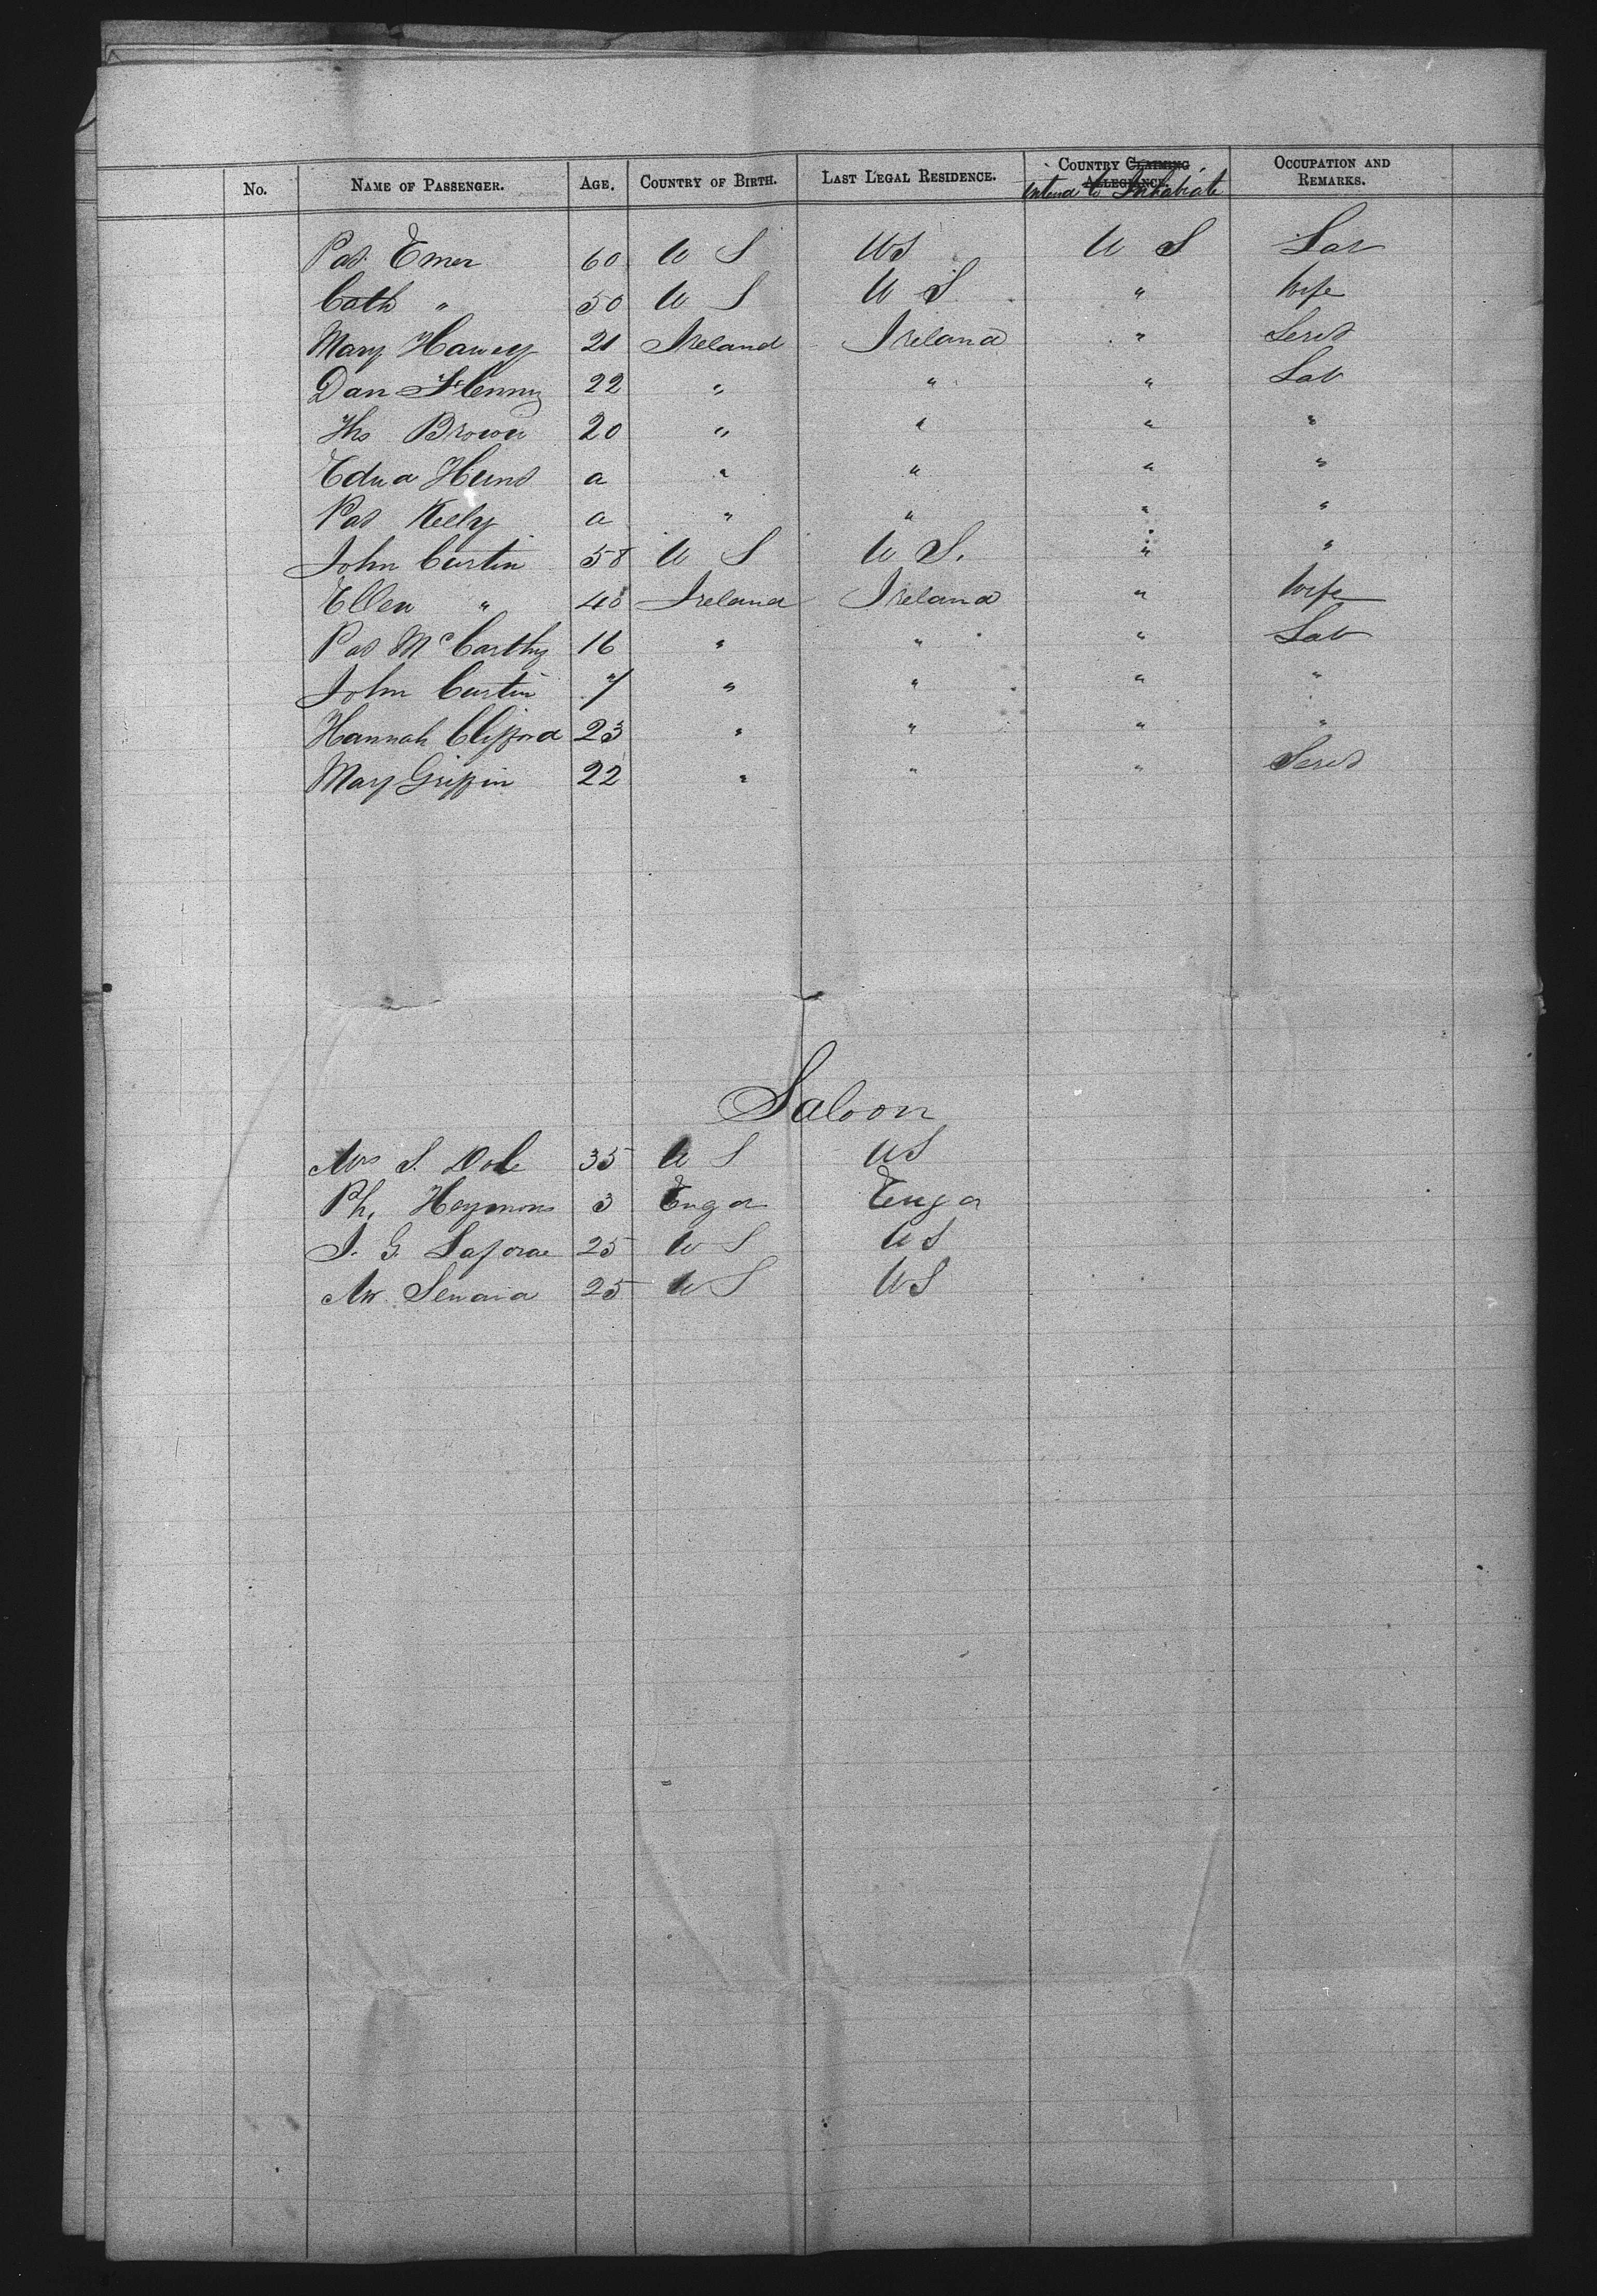 No. NAME OF PASSENGER. AGE. COUNTRY OF BIRTH. LAST LEGAL RESIDENCE. COUNTRY CLAIMING ALLEGIANCE. Intend to Inhabiate OCCUPATION AND REMARKS.
Pat Emer 60 U S US U S Lab
Cath " 50 U S U S " Wife
Mary Hawey 21 Ireland Ireland " Servt
Dan 22 " " " Lab
Ths Brown 20 " " " "
Edwd a " " " "
Pat Kelly a " " " "
John Curtin 58 U S U S. " "
Ellen " 40 Ireland Ireland " Wife
Pat McCarthy 16 " " " Lab
John Curtin 7 " " " "
Hannah Clifford 23 " " " "
Mary Griffin 22 " " " Servt
Saloon
Mrs S. Dole 35 U S US
Ph. Heymons 3 Engd Engd
J. G. 25 U S US
Mr 25 US US